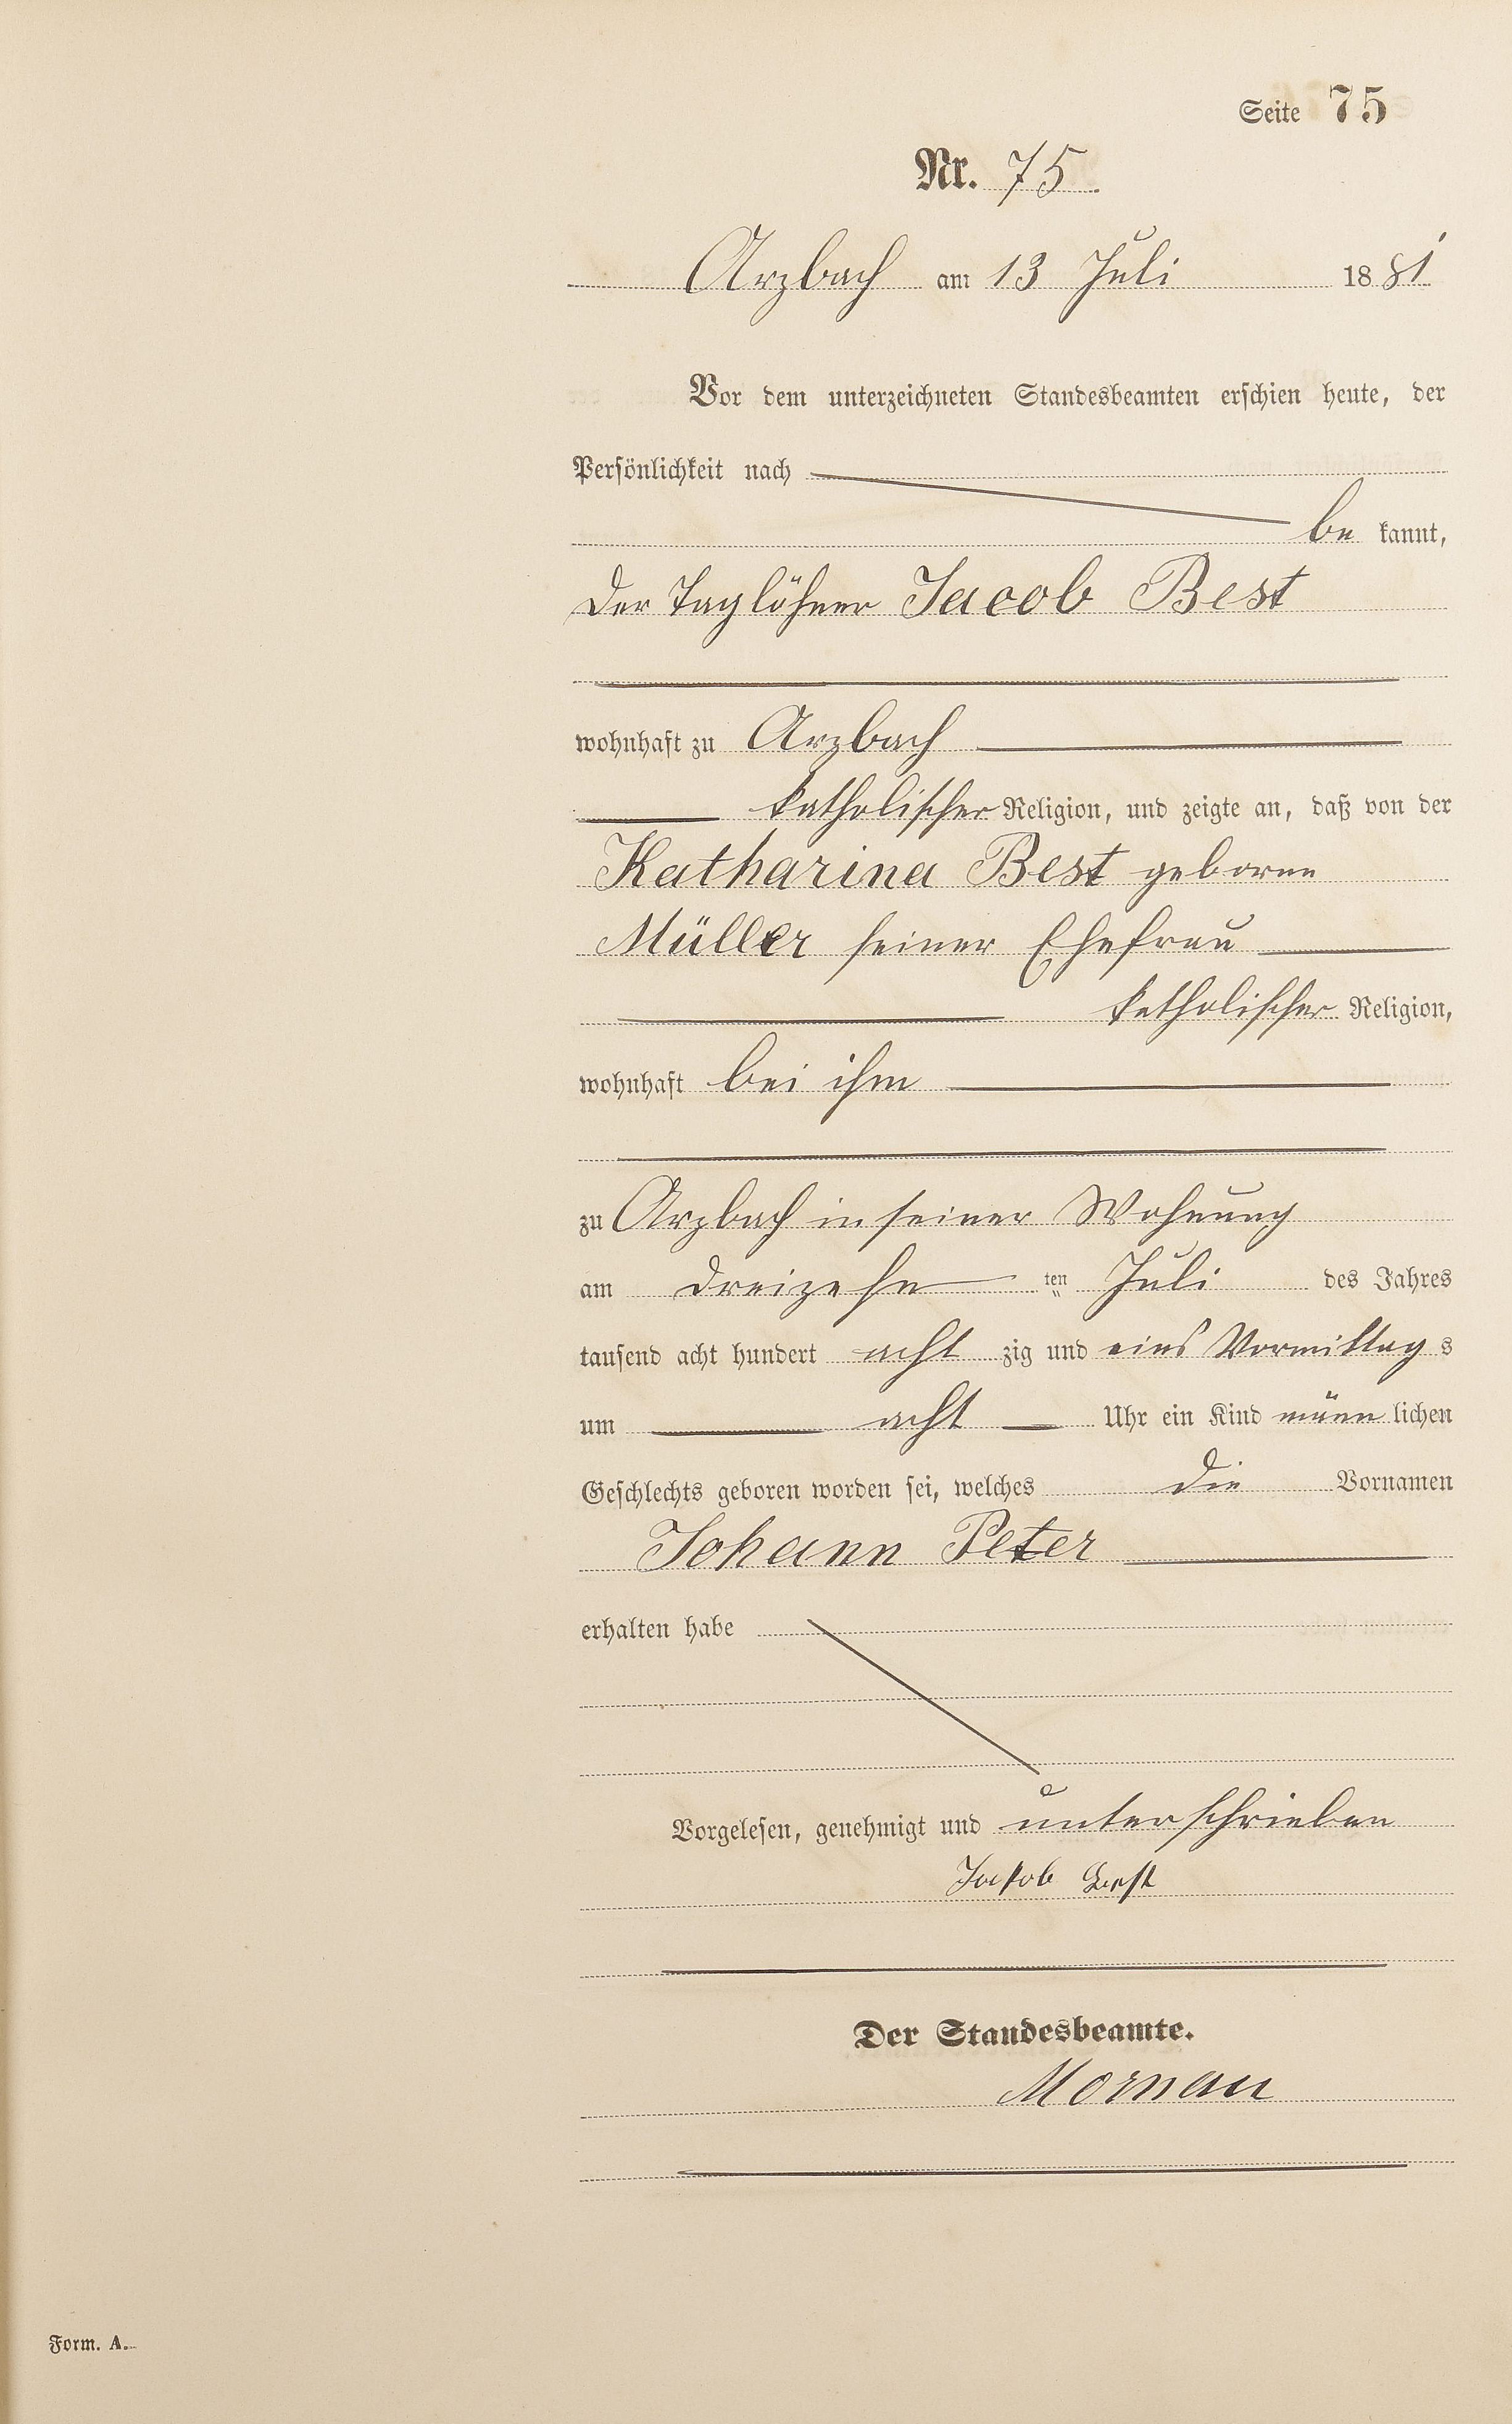 Seite 75
Nr. 75
Arzbach am 13 Juli 1881
Vor dem unterzeichneten Standesbeamten erschien heute, der
Persönlichkeit nach
be kannt,
der Taglöhner Jacob Best
wohnhaft zu Arzbach
katholischer Religion, und zeigte an, daß von der
Katharina Best geborne
Müller seiner Ehefrau
katholischer Religion,
wohnhaft bei ihm
zu Arzbach in seiner Wohnung
am dreizehn ten Juli des Jahres
tausend acht hundert acht zig und eins Vormittag s
um acht Uhr ein Kind männ lichen
Geschlechts geboren worden sei, welches die Vornamen
Johann Peter
erhalten habe
Vorgelesen, genehmigt und unterschrieben
Jakob Best
Der Standesbeamte.
Mornau
Form. A.